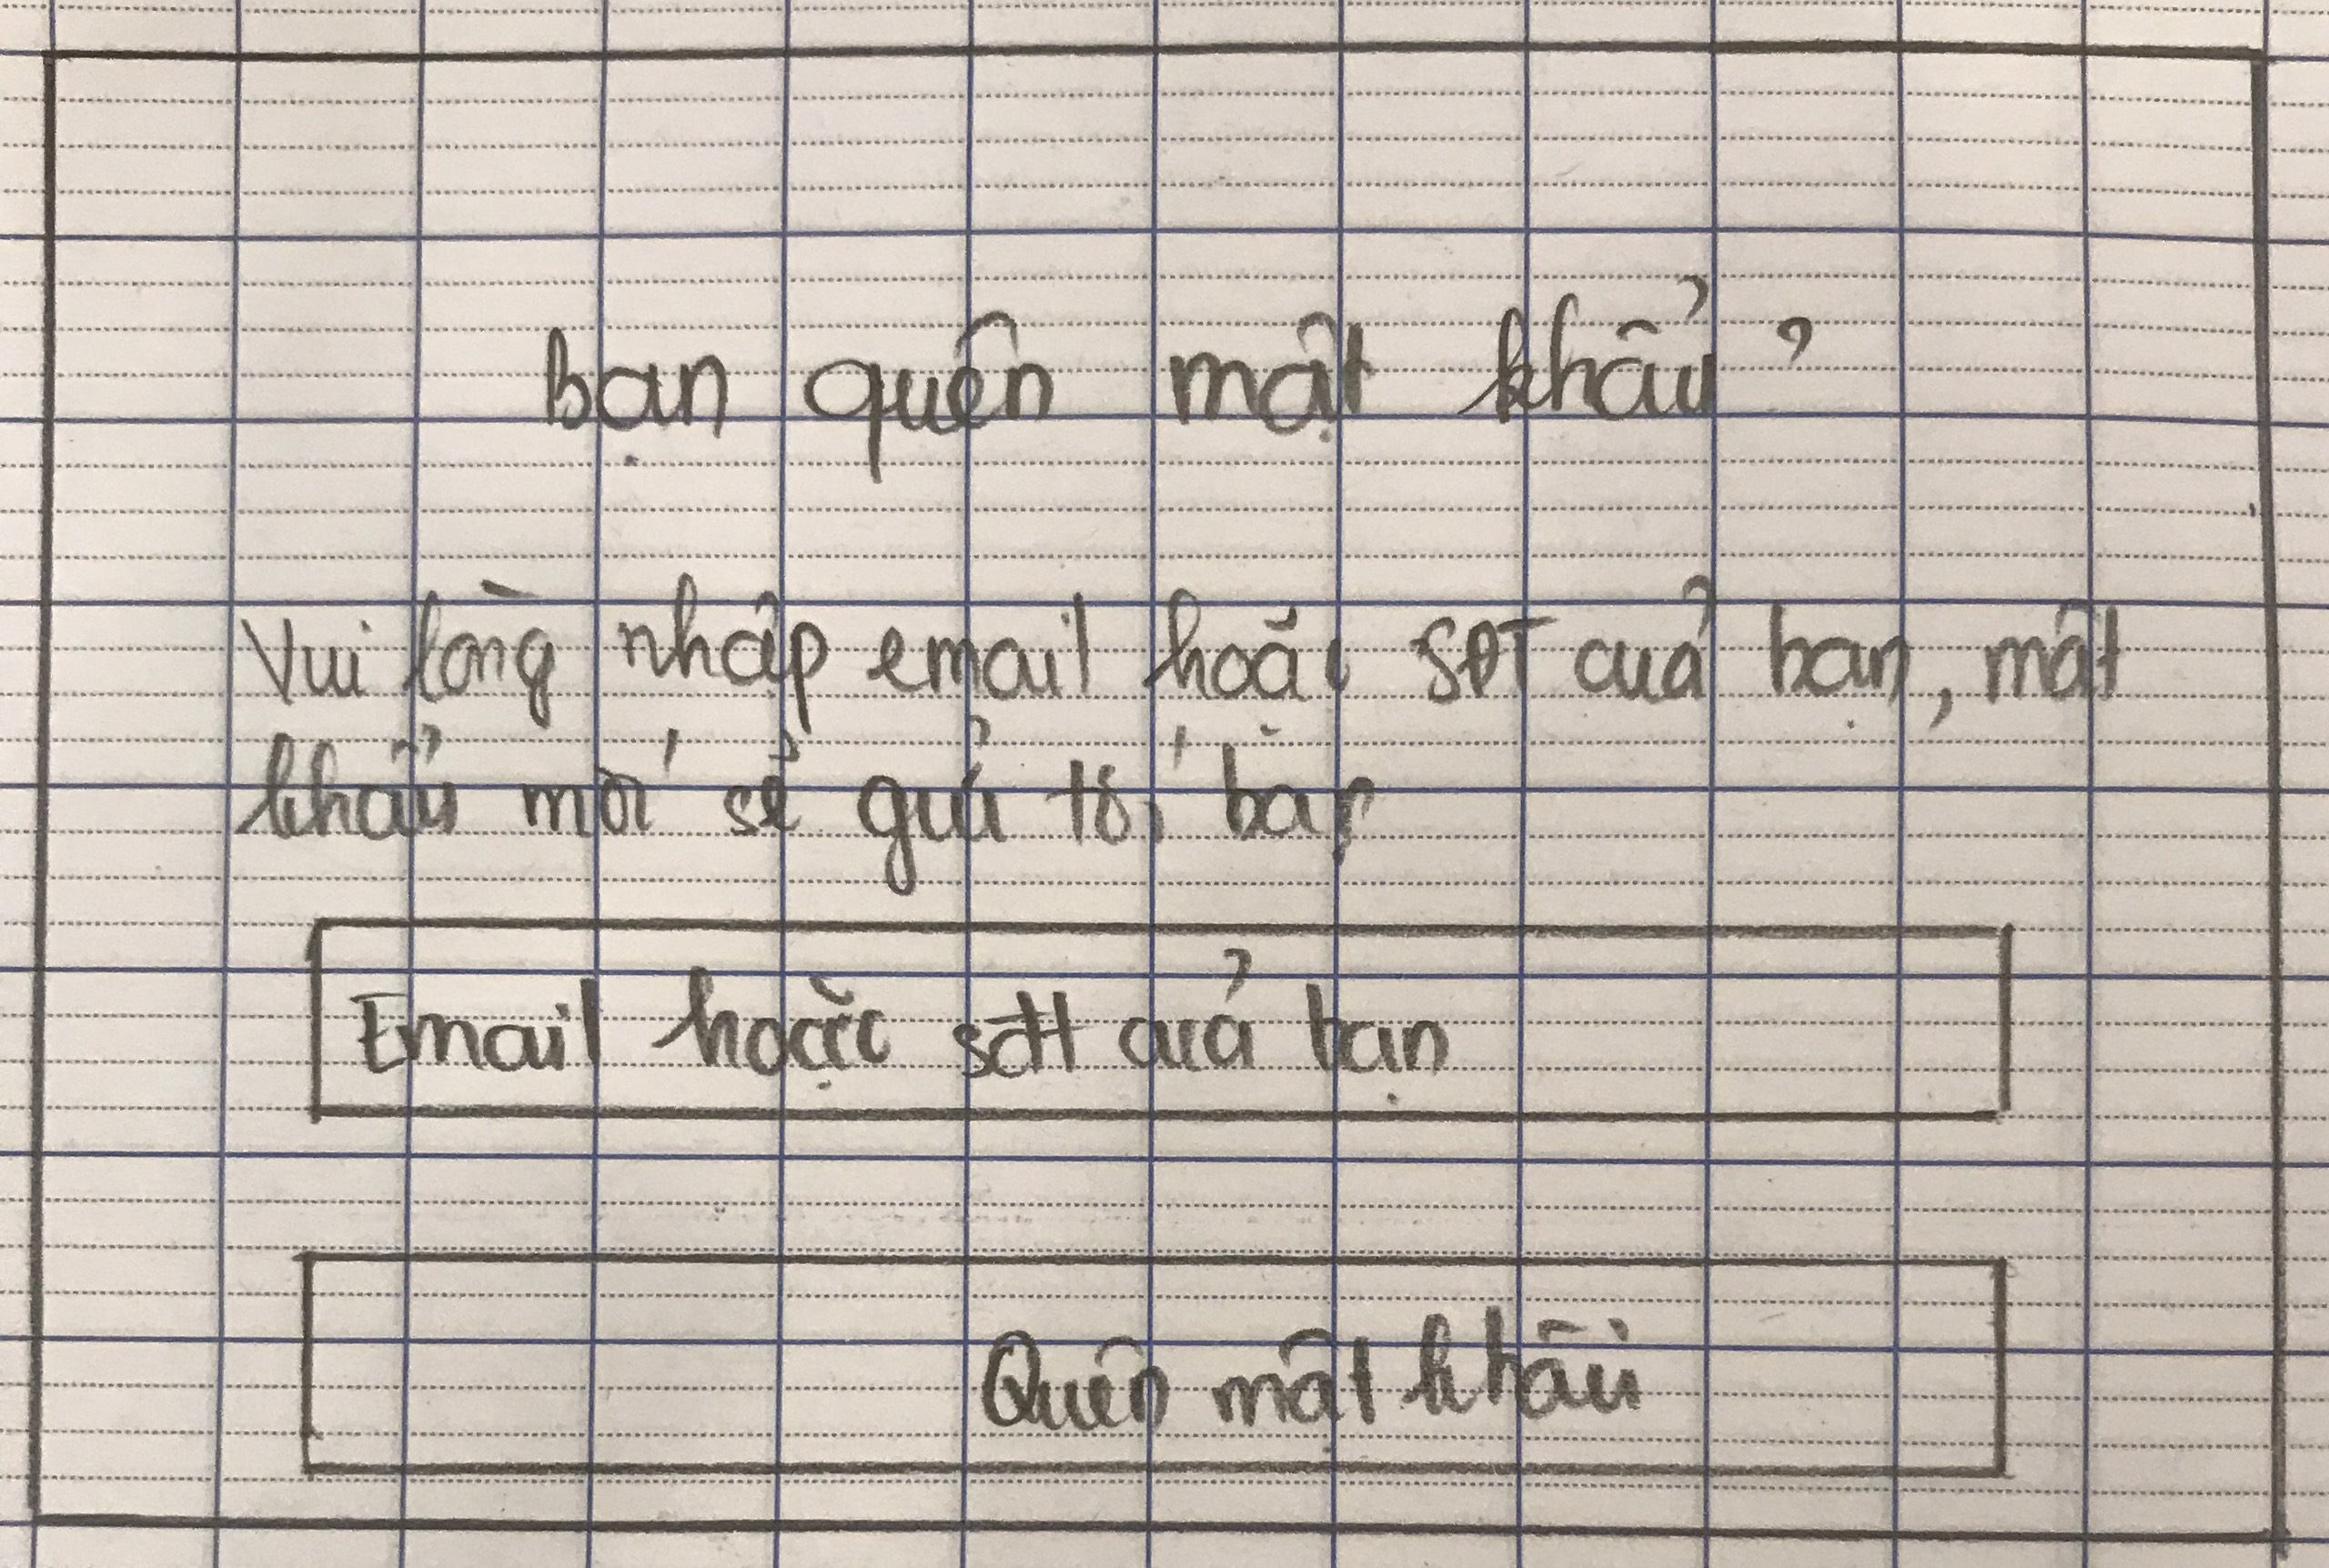 Bạn quên mật khẩu?
Vui lòng nhập email hoặc SĐT của bạn, mật
khẩu mới sẽ gửi tới bạn
Email hoặc sđt của bạn
Quên mật khẩu